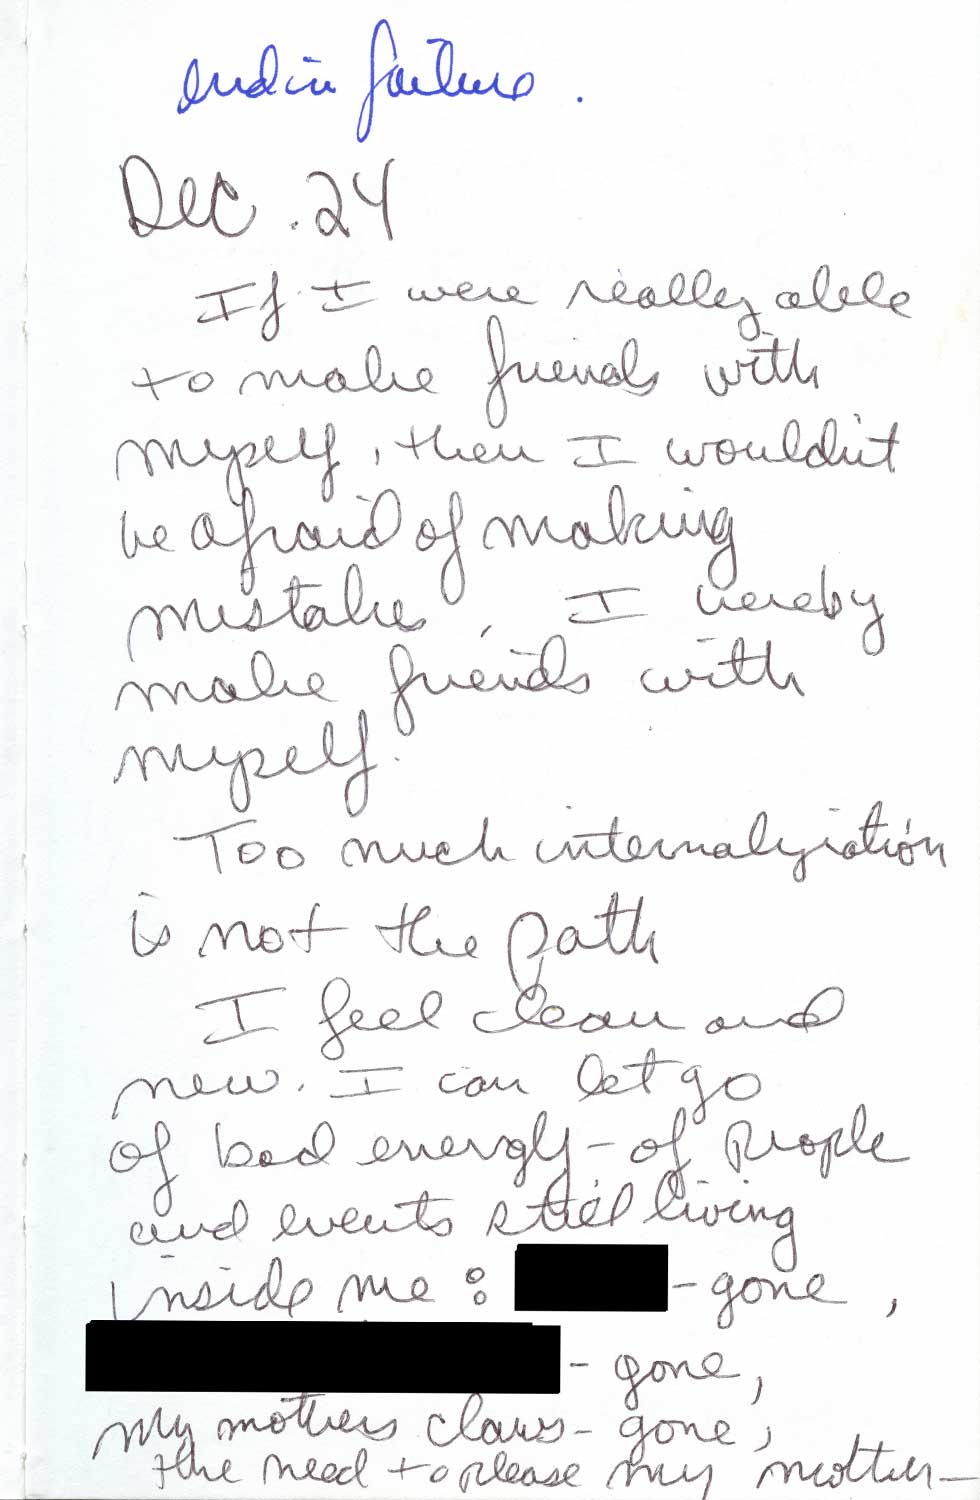 end in failure.
Dec. 24
If I were really able
to make friends with
myself, then I wouldn't
be afraid of making
mistakes, I hereby
make friends with
myself.
Too much internalization
is not the path
I feel clean and
new. I can let go
of bad energy - of people
and events still living
inside me: - gone,
- gone,
my mothers claws - gone,
the need to please my mother -